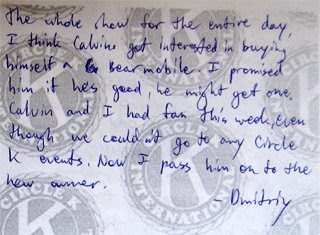 The whole show for the entire day,
I think Calvin got interested in buying
himself a Bearmobile. I promised
him if hes good, he might get one.
Calvin and I had fun this week, even
though we could'nt go to any Circle
K events. Now I pass him on to the
new owner.
- Dmitriy
CIRCLE K
INTERNATIONAL
K